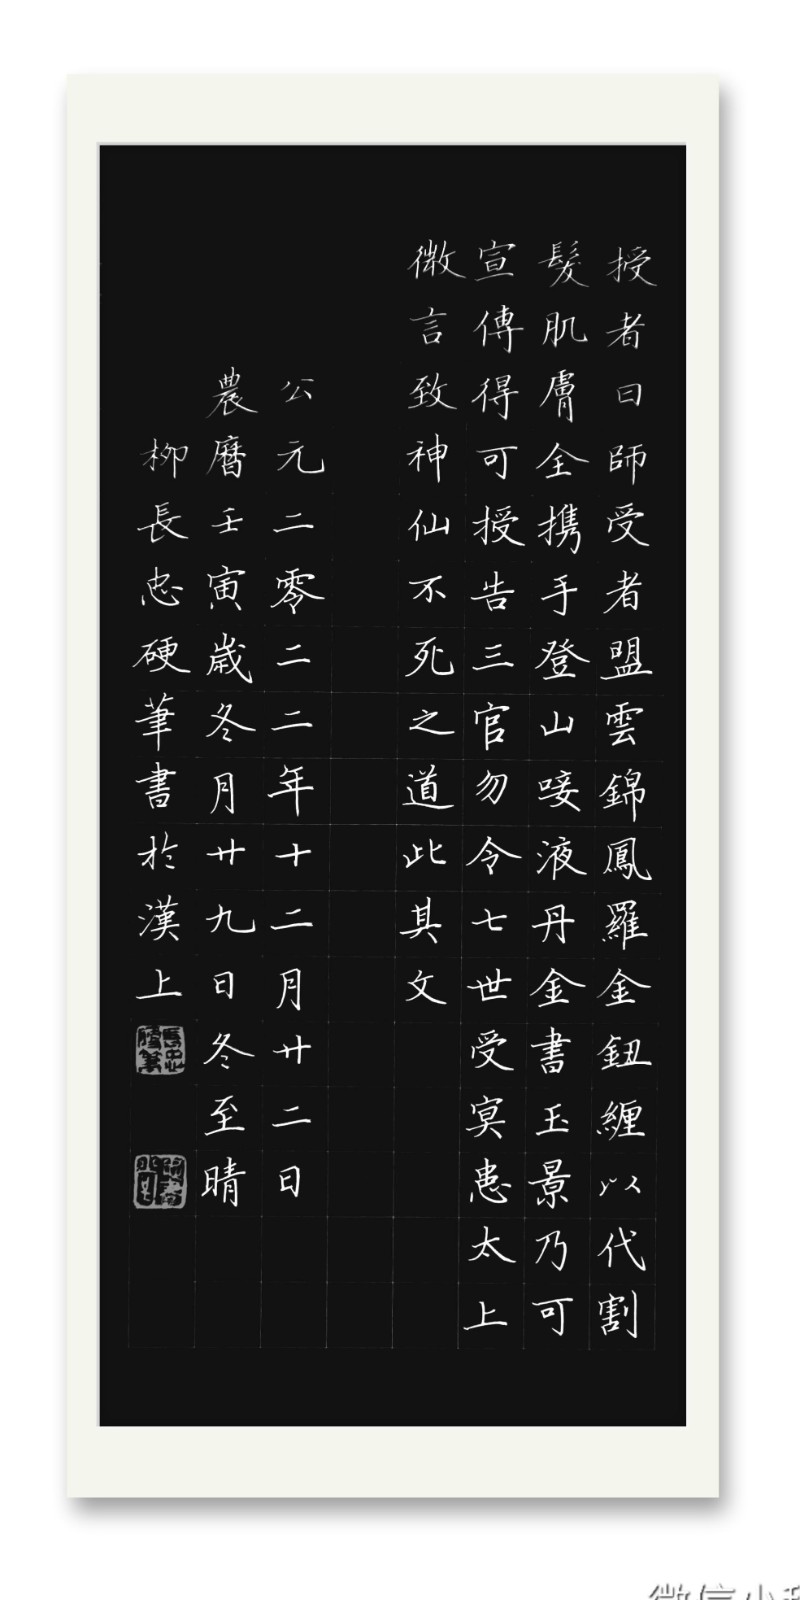 授者曰師受者盟雲錦鳳羅金鈕纏以代割
髮肌膚全携手登山唼液丹金書玉景乃可
宣傳得可授告三官勿令七世受冥患太上
微言致神仙不死之道此其文
公元二零二二年十二月廿二日
農曆壬寅歲冬月廿九日冬至晴
柳長忠硬筆書於漢上